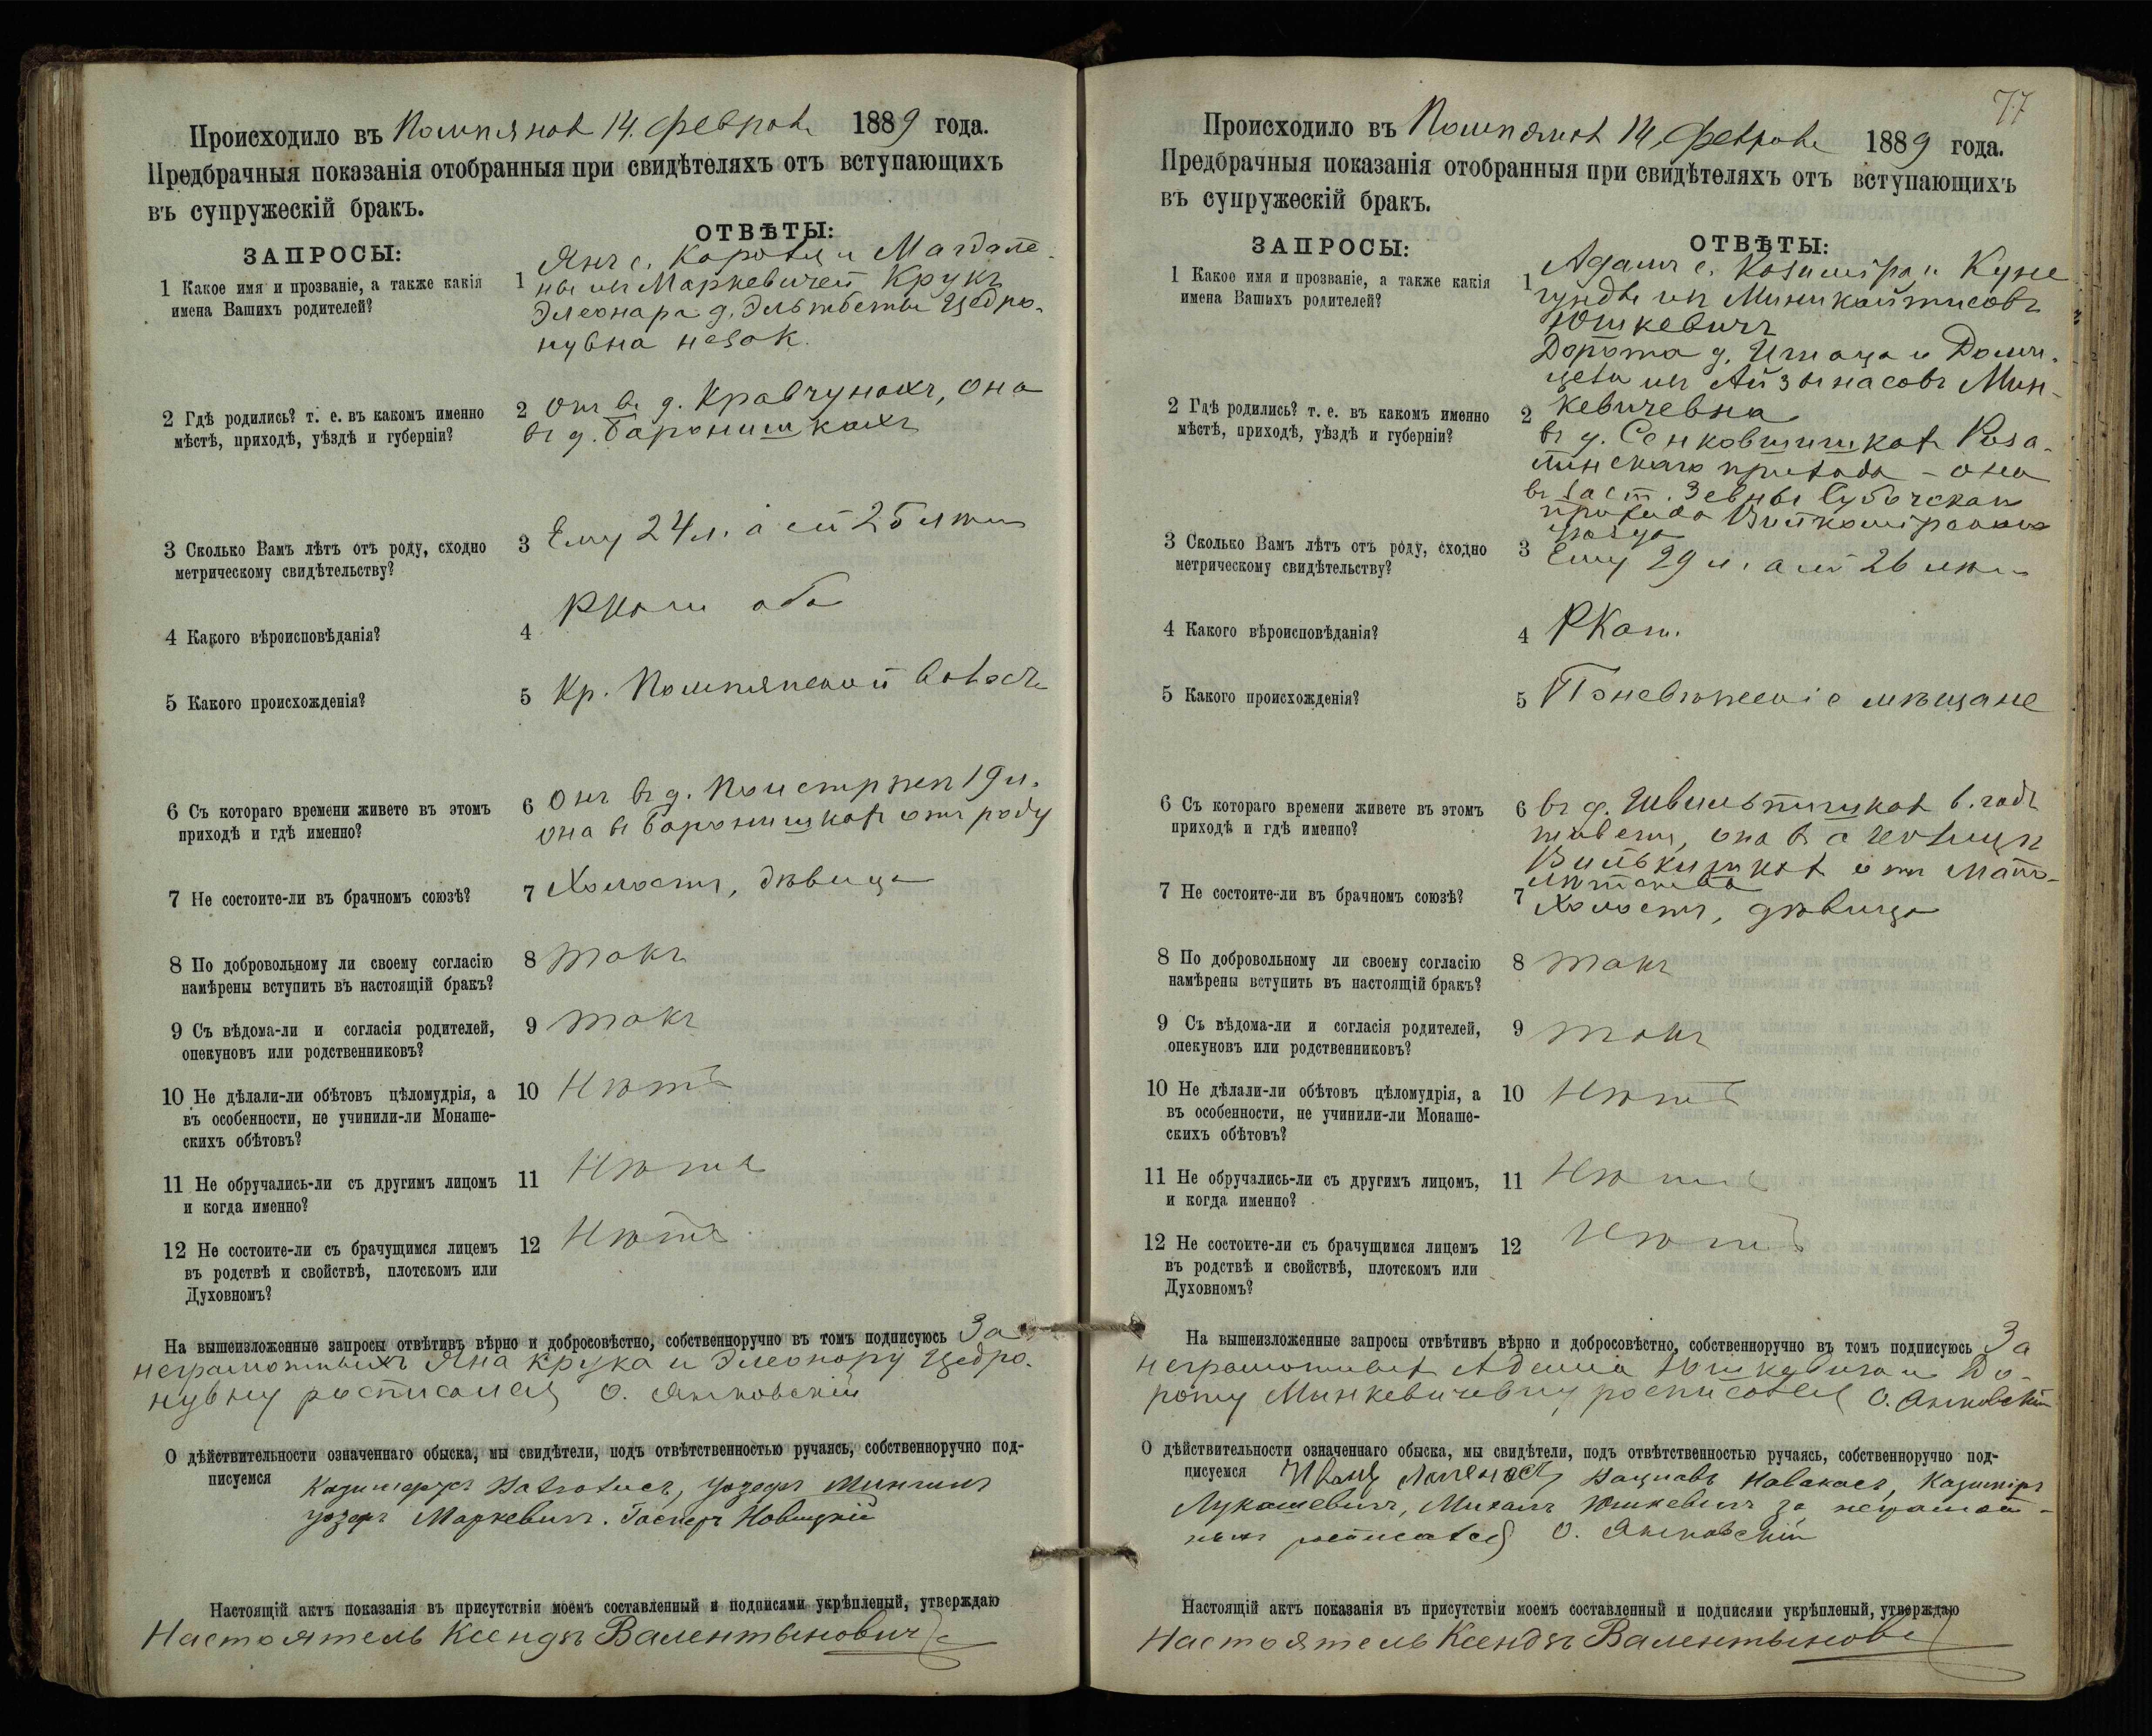 Происходило въ Помпянах 14. февраля 1889 года.
Предбрачныя показанія отобранныя при свидѣтеляхъ отъ вступающихъ
въ супружескій бракъ.
ЗАПРОСЫ:
ОТВѢТЫ:
1 Какое имя и прозваніе, а также какія
имена Вашихъ родителей?
1 Янъ с. Кароля и Магдале-
ны изъ Маркевичей Крукъ
Элеонара д. Эльжбеты Цедро-
нувна незак.
2 Гдѣ родились? т. е. въ какомъ именно
мѣстѣ, приходѣ, уѣздѣ и губерніи?
2 Онъ въ д. Кравчунахъ, она
въ д. Баронишкахъ
3 Сколько Вамъ лѣтъ отъ роду, сходно
метрическому свидѣтельству?
3 Ему 24 л. а ей 25 лѣтъ
4 Какого вѣроисповѣданія?
4 РКат. оба
5 Какого происхожденія?
5 Кр. Помпянской волости
6 Съ котораго времени живете въ этомъ
приходѣ и гдѣ именно?
6 Онъ въ д. 19 л.
она въ Баронишках отъ роду
7 Не состоите-ли въ брачномъ союзѣ?
7 Холостъ, дѣвица
8 По добровольному ли своему согласію
намѣрены вступить въ настоящій бракъ?
8 такъ
9 Съ вѣдома-ли и согласія родителей,
опекуновъ или родственниковъ?
9 такъ
10 Не дѣлали-ли обѣтовъ цѣломудрія, а
въ особенности, не учинили-ли Монаше-
скихъ обѣтовъ?
10 Нѣтъ
11 Не обручались-ли съ другимъ лицомъ
и когда именно?
11 Нѣтъ
12 Не состоите-ли съ брачущимся лицемъ
въ родствѣ и свойствѣ, плотскомъ или
Духовномъ?
12 Нѣтъ
На вышеизложенные запросы отвѣтивъ вѣрно и добросовѣстно, собственноручно въ томъ подписуюсь За
неграмотныхъ Яна Крука и Элеонору Цедро-
нувну росписался О. Янковскій
О дѣйствительности означеннаго обыска, мы свидѣтели, подъ отвѣтственностью ручаясь, собственноручно под-
писуемся Юзефъ
Юзефъ Маркевичъ. Гасперъ Новицкій
Настоящій актъ показанія въ присутствіи моемъ составленный и подписями укрѣпленый, утверждаю
Настоятель Ксендзъ Валентыновичъ
77
Происходило въ Помпянах 14. февраля 1889 года.
Предбрачныя показанія отобранныя при свидѣтеляхъ отъ вступающихъ
въ супружескій бракъ.
ЗАПРОСЫ:
ОТВѢТЫ:
1 Какое имя и прозваніе, а также какія
имена Вашихъ родителей?
1 Адамъ с. Казиміра и Куне-
гунды изъ Миникайтисовъ
Юшкевичъ
Дорота д. Игнаца и Доми-
целы изъ Айзвинасовъ Мин-
кевичевна
2 Гдѣ родились? т. е. въ какомъ именно
мѣстѣ, приходѣ, уѣздѣ и губерніи?
2 въ д. Сенковшишках
прихода - она
въ заст. Субочскаго
прихода Вилкомірскаго
уѣзда
3 Сколько Вамъ лѣтъ отъ роду, сходно
метрическому свидѣтельству?
3 Ему 29 л. а ей 26 лѣтъ
4 Какого вѣроисповѣданія?
4 РКат.
5 Какого происхожденія?
5 Поневѣжскіе мѣщане
6 Съ котораго времени живете въ этомъ
приходѣ и гдѣ именно?
6 въ д. 6. годъ
живетъ, она въ
Вилькишках отъ мало-
лѣтства
7 Не состоите-ли въ брачномъ союзѣ?
7 Холостъ, дѣвица
8 По добровольному ли своему согласію
намѣрены вступить въ настоящій бракъ?
8 такъ
9 Съ вѣдома-ли и согласія родителей,
опекуновъ или родственниковъ?
9 такъ
10 Не дѣлали-ли обѣтовъ цѣломудрія, а
въ особенности, не учинили-ли Монаше-
скихъ обѣтовъ?
10 Нѣтъ
11 Не обручались-ли съ другимъ лицомъ,
и когда именно?
11 Нѣтъ
12 Не состоите-ли съ брачущимся лицемъ
въ родствѣ и свойствѣ, плотскомъ или
Духовномъ?
12 Нѣтъ
На вышеизложенные запросы отвѣтивъ вѣрно и добросовѣстно, собственноручно въ томъ подписуюсь За
неграмотных Адама Юшкевича и До-
роту Минкевичевну росписался О. Янковскій
О дѣйствительности означеннаго обыска, мы свидѣтели, подъ отвѣтственностью ручаясь, собственноручно под-
писуемся Вацлавъ Новакасъ, Казиміръ
Лукашевичъ, Михалъ Юшкевичъ за неграмот-
ныхъ росписался О. Янковскій
Настоящій актъ показанія въ присутствіи моемъ составленный и подписями укрѣпленый, утверждаю
Настоятель Ксендзъ Валентынович